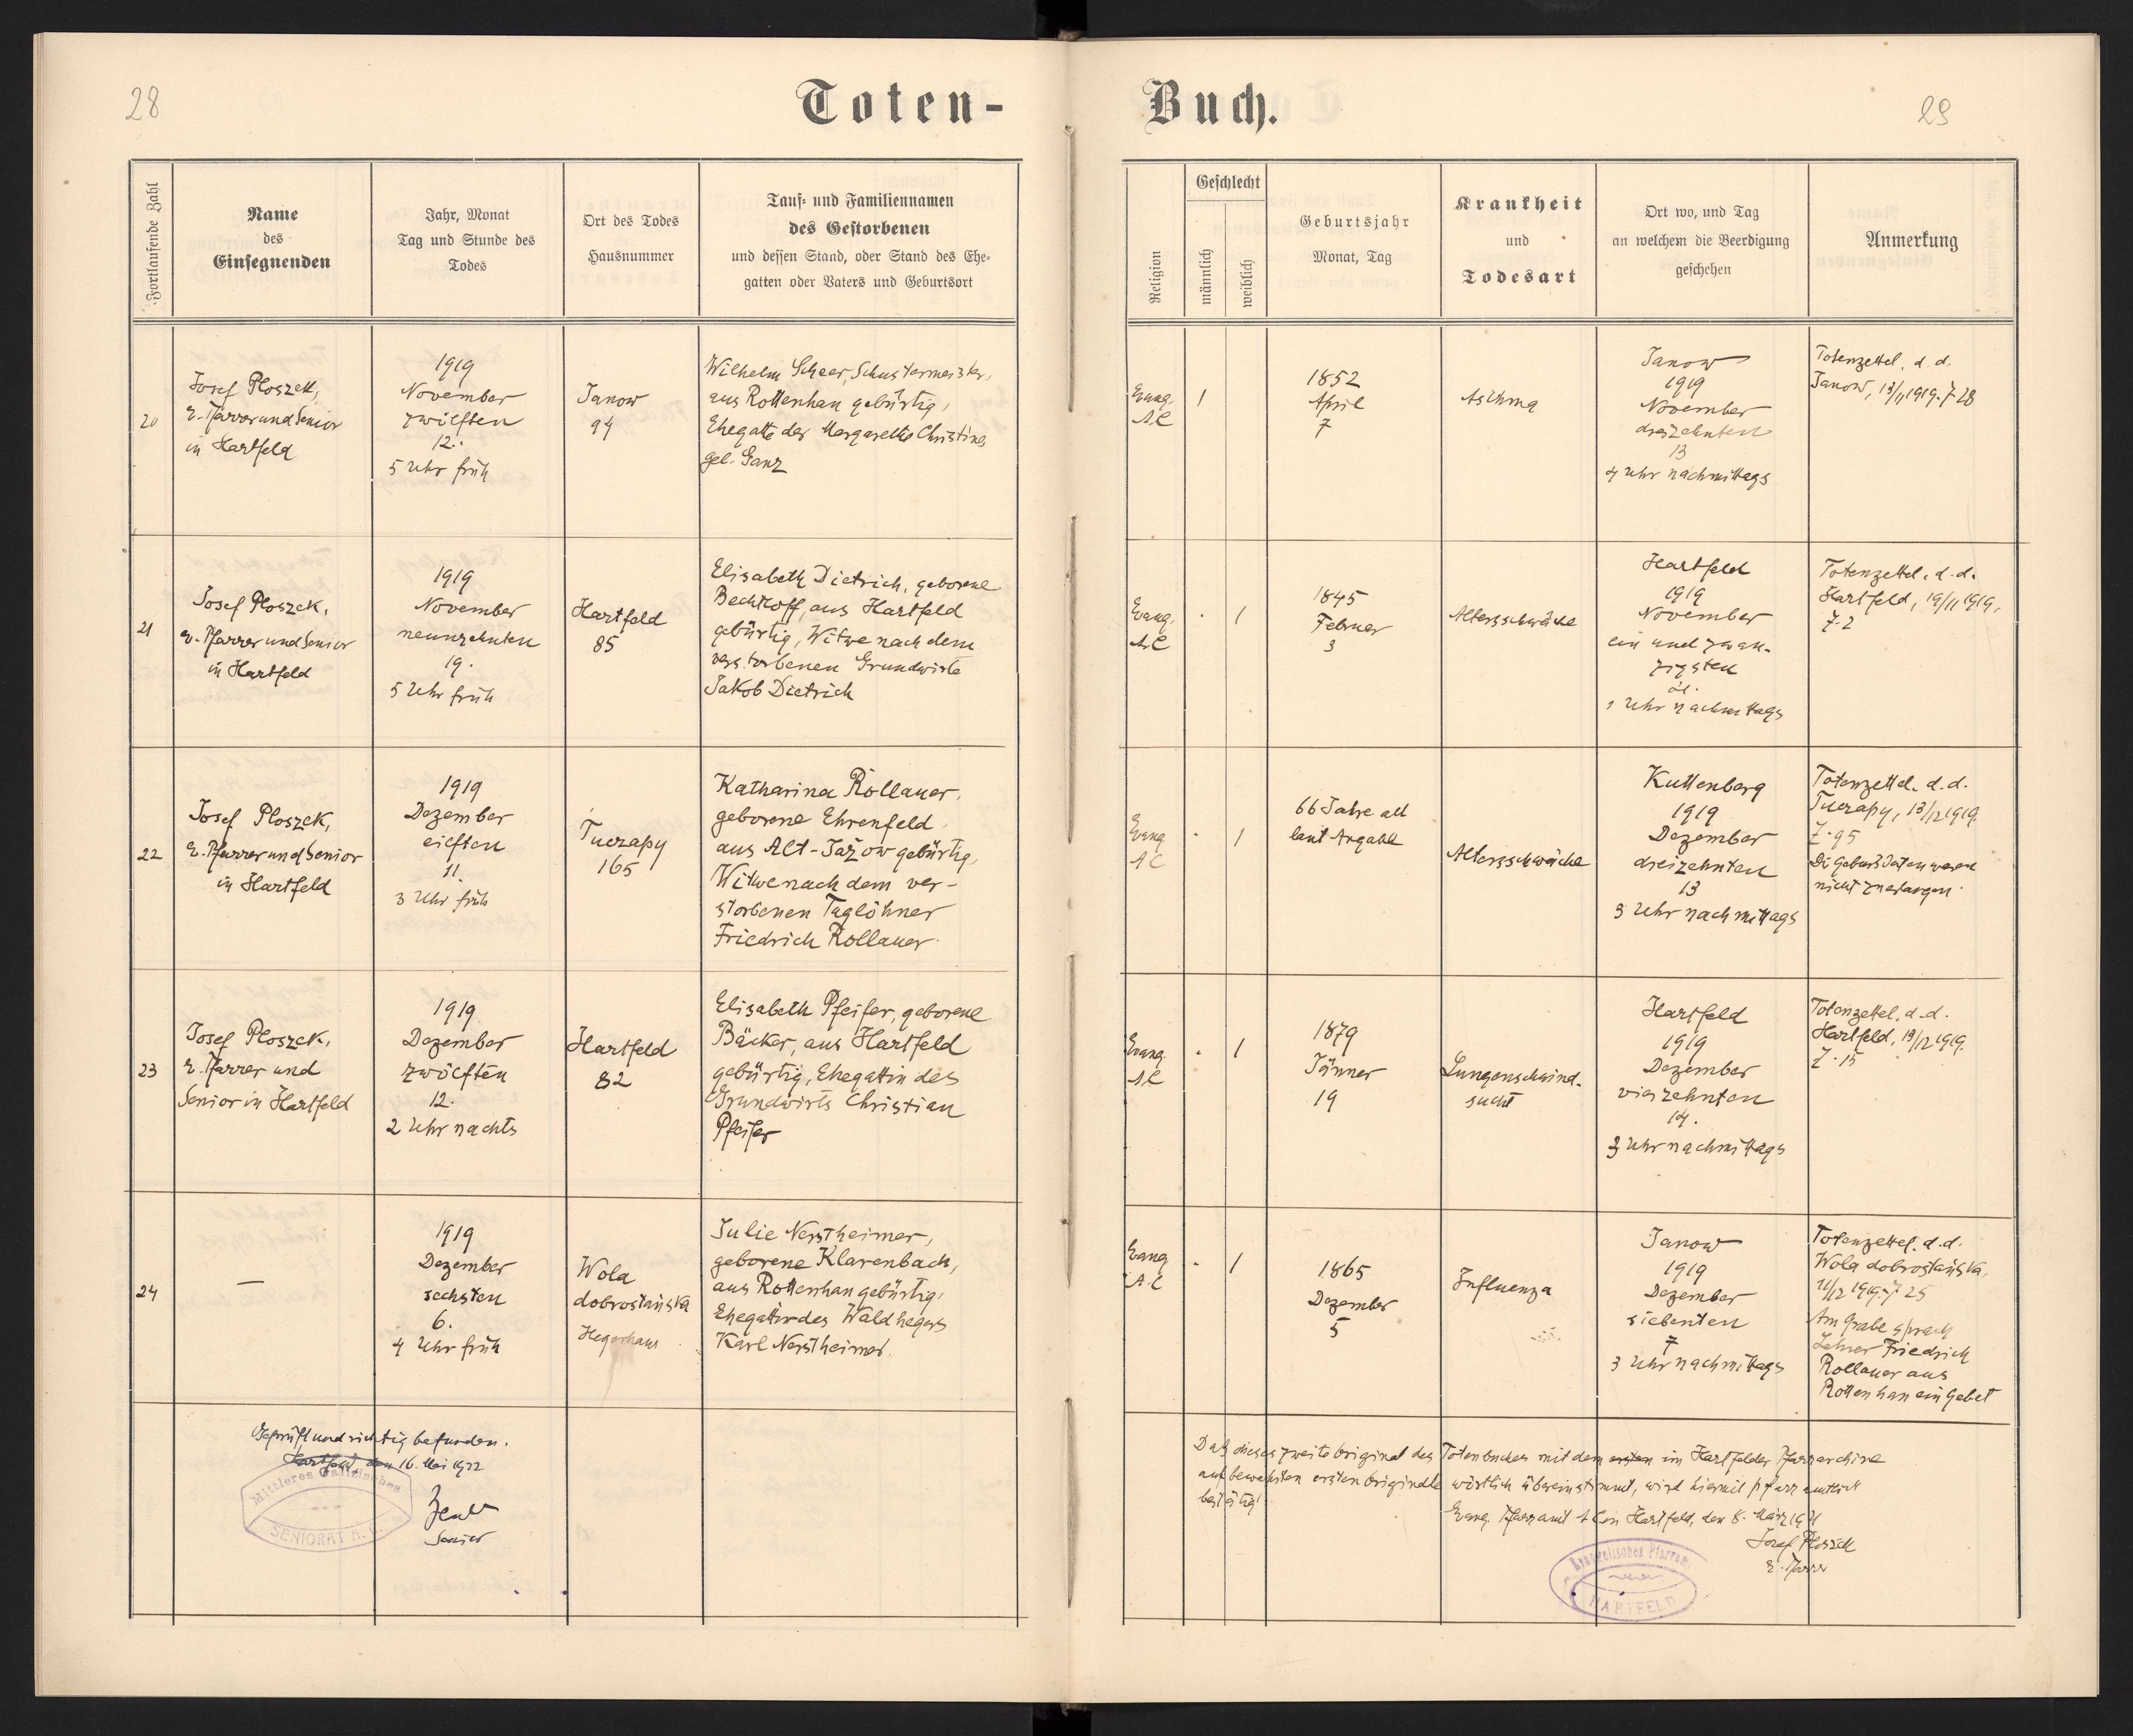 28
Toten-
Fortlaufende Zahl
Name
des
Einsegnenden
Jahr, Monat
Tag und Stunde des
Todes
Ort des Todes
Hausnummer
Tauf- und Familiennamen
des Gestorbenen
und dessen Stand, oder Stand des Ehe-
gatten oder Vaters und Geburtsort
20
Josef Ploszek,
e. Pfarrer und Senior
in Hartfeld
1919
November
zwölften
12.
5 Uhr früh
Janow
94
Wilhelm Scheer, Schustermeister,
aus Rottenhan gebürtig,
Ehegatte der Margarethe Christine
geb. Ganz
21
Josef Ploszek,
e. Pfarrer und Senior
in Hartfeld
1919
November
neunzehnten
19.
5 Uhr früh
Hartfeld
85
Elisabeth Dietrich, geborene
Bechtloff, aus Hartfeld
gebürtig, Witwe nach dem
verstorbenen Grundwirte
Jakob Dietrich
22
Josef Ploszek,
e. Pfarrer und Senior
in Hartfeld
1919
Dezember
elften
11.
3 Uhr früh
Tuczapy
165
Katharina Rollauer,
geborene Ehrenfeld,
aus Alt-Jażow gebürtig,
Witwe nach dem ver-
storbenen Taglöhner
Friedrich Rollauer.
23
Josef Ploszek,
e. Pfarrer und
Senior in Hartfeld
1919
Dezember
zwölften
12.
2 Uhr nachts
Hartfeld
82
Elisabeth Pfeifer, geborene
Bäcker, aus Hartfeld
gebürtig, Ehegattin des
Grundwirts Christian
Pfeifer
24
—
1919
Dezember
sechsten
6.
4 Uhr früh
Wola
dobrostańska
Hegerhaus
Julie Nerstheimer,
geborene Klarenbach,
aus Rottenhan gebürtig,
Ehegattin des Waldhegers
Karl Nerstheimer.
Geprüft und richtig befunden.
Hartfeld, den 16. Mai 1922
Mittleres Galizisches
SENIORAT A. C.
Senior
Buch.
29
Religion
Geschlecht
männlich
weiblich
Geburtsjahr
Monat, Tag
Krankheit
und
Todesart
Ort wo, und Tag
an welchem die Beerdigung
geschehen
Anmerkung
Evang.
A.C
1
1852
April
7
Asthma
Janow
1919
November
dreizehnten
13
4 Uhr nachmittags
Totenzettel, d. d.
Janow, 13/11 1919. Z. 28
Evang.
A.C
. 1
1845
Februar
3
Altersschwäche
Hartfeld
1919
November
ein und zwan-
zigsten
21.
1 Uhr nachmittags
Totenzettel. d. d.
Hartfeld, 19/11 1919,
Z. 2
Evang.
A C
. 1
66 Jahre alt
laut Angabe
Altersschwäche
Kuttenberg
1919
Dezember
dreizehnten
13
3 Uhr nachmittags
Totenzettel. d. d.
Tuczapy, 13/12 1919.
Z. 95
Die Geburtsdaten waren
nicht zu erlangen.
Evang.
A.C
. 1
1879
Jänner
19
Lungenschwind-
sucht
Hartfeld
1919
Dezember
vierzehnten
14.
3 Uhr nachmittags
Totenzettel, d. d.
Hartfeld, 13/12 1919.
Z. 15
Evang
A.C
. 1
1865
Dezember
5
Influenza
Janow
1919
Dezember
siebenten
7
3 Uhr nachmittags
Totenzettel. d. d.
Wola dobrostańska,
11/12 1919. Z 25
Am Grabe sprach
Lehrer Friedrich
Rollauer aus
Rottenhan ein Gebet
Daß dieses zweite Original des Totenbuches mit dem ersten im Hartfelder Pfarrarchive
aufbewahrten ersten Originale wörtlich übereinstimmt, wird hiemit pfarramtlich
bestätigt.
Evang. Pfarramt A C in Hartfeld, den 8. März 1921
Josef Ploszek
e. Pfarrer
Evangelisches Pfarramt
HARTFELD